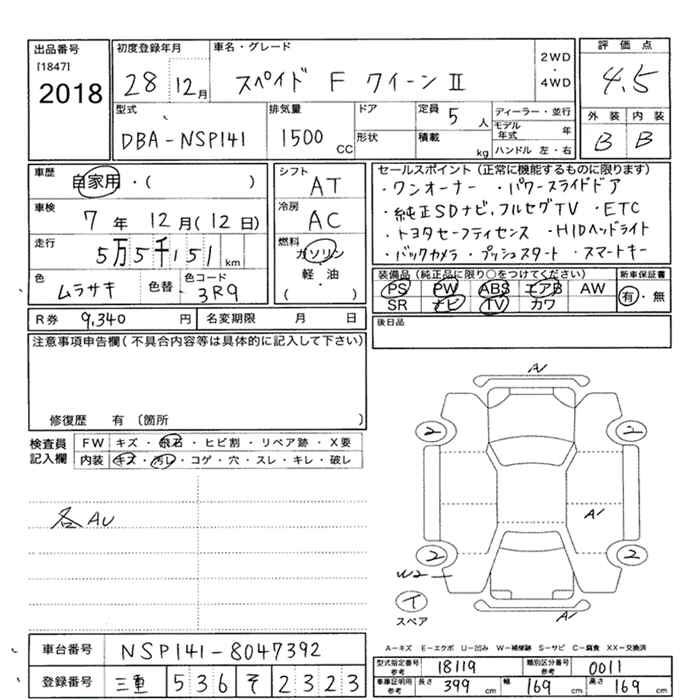 出品番号
[1847]
2018
初度登録年月
28 12月
車名・グレード
スペイド F クイーンⅡ
2WD
・
4WD
評価点
4.5
外装 内装
B B
型式
DBA-NSP141
排気量
1500 CC
ドア
形状
定員 5 人
積載 kg
ディーラー・並行
モデル年式 年
ハンドル 左・右
車歴
自家用・( )
車検
7年 12月(12日)
走行
5万5千151 km
色
ムラサキ
色替
色コード
3R9
シフト
AT
冷房
AC
燃料
ガソリン
軽・油
( )
セールスポイント (正常に機能するものに限ります)
・ワンオーナー ・パワースライドドア
・純正SDナビ,フルセグTV ・ETC
・トヨタセーフティセンス ・HIDヘッドライト
・バックカメラ ・プッシュスタート ・スマートキー
装備品 (純正品に限り○をつけてください)
PS PW ABS エアB AW
SR ナビ TV カワ
新車保証書
有・無
R券 9,340 円
名変期限 月 日
後日品
注意事項申告欄 (不具合内容等は具体的に記入して下さい)
修復歴 有 〔箇所 〕
検査員
記入欄
FW キズ・飛石・ヒビ割・リペア跡・X要
内装 キズ・汚レ・コゲ・穴・スレ・キレ・破レ
各AU
A1
2 2
A1
2 2
W2
イ
スペア
A1
A=キズ E=エクボ U=凹み W=補修跡 S=サビ C=腐食 XX=交換済
車台番号
NSP141-8047392
登録番号
三重 536 そ 2323
型式指定番号 参考
18119
類別区分番号 参考
0011
車庫証明用 参考
長さ 399 cm 幅 169 cm 高さ 169 cm